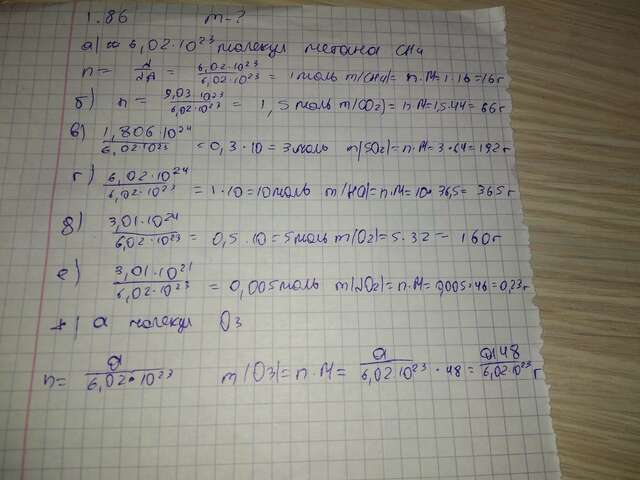 1.86 m-?
а) 6,02·10²³ молекул метана CH₄
n = = 6,02·10²³/6,02·10²³ = 1 моль m(CH₄) = n·M = 1·16 = 16 г
б) n = 9,03·10²³/6,02·10²³ = 1,5 моль m(CO₂) = n·M = 1,5·44 = 66 г
в) 1,806·10²⁴/6,02·10²³ = 0,3·10 = 3 моль m(SO₂) = n·M = 3·64 = 192 г
г) 6,02·10²⁴/6,02·10²³ = 1·10 = 10 моль m(HCl) = n·M = 10·36,5 = 365 г
д) 3,01·10²⁴/6,02·10²³ = 0,5·10 = 5 моль m(O₂) = 5·32 = 160 г
е) 3,01·10²¹/6,02·10²³ = 0,005 моль = n·M = 0,005·46 = 0,23 г
ж) а молекул O₃
n = a/6,02·10²³ m(O₃) = n·M = a/6,02·10²³ · 48 = a·48/6,02·10²³ г